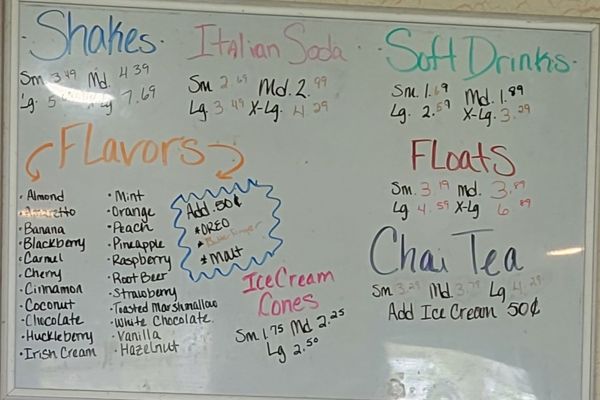 Shakes
Sm. 3.49 Md. 4.39
Lg. 5 X-Lg 7.69
Italian Soda
Sm 2.69 Md. 2.99
Lg 3.49 X-Lg. 4.29
Soft Drinks
Sm. 1.69 Md. 1.89
Lg. 2.59 X-Lg. 3.29
Flavors
· Almond
· Amaretto
· Banana
· Blackberry
· Carmel
· Cherry
· Cinnamon
· Coconut
· Chocolate
· Huckleberry
· Irish Cream
· Mint
· Orange
· Peach
· Pineapple
· Raspberry
· Root Beer
· Strawberry
· Toasted Marshmallow
· White Chocolate
· Vanilla
· Hazelnut
Add .50¢
* OREO
* Butterfinger
* Malt
Ice Cream
Cones
Sm. 1.75 Md 2.25
Lg 2.50
Floats
Sm. 3.19 md. 3.89
Lg 4.59 X-Lg 6.89
Chai Tea
Sm 3.29 Md 3.79 Lg 4.29
Add Ice Cream 50¢